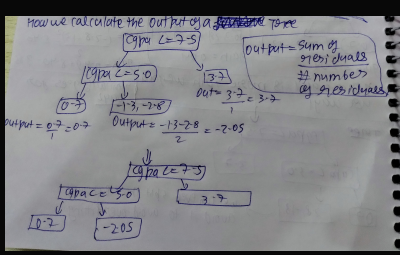 How we calculate the output of a Tree
cgpa <= 7.5
output = sum of residuals
# number of residuals
cgpa <= 5.0
3.7
out = 3.7/1 = 3.7
0.7
-1.3, -2.8
output = 0.7/1 = 0.7
output = -1.3-2.8/2 = -2.05
cgpa <= 7.5
cgpa <= 5.0
3.7
0.7
-2.05